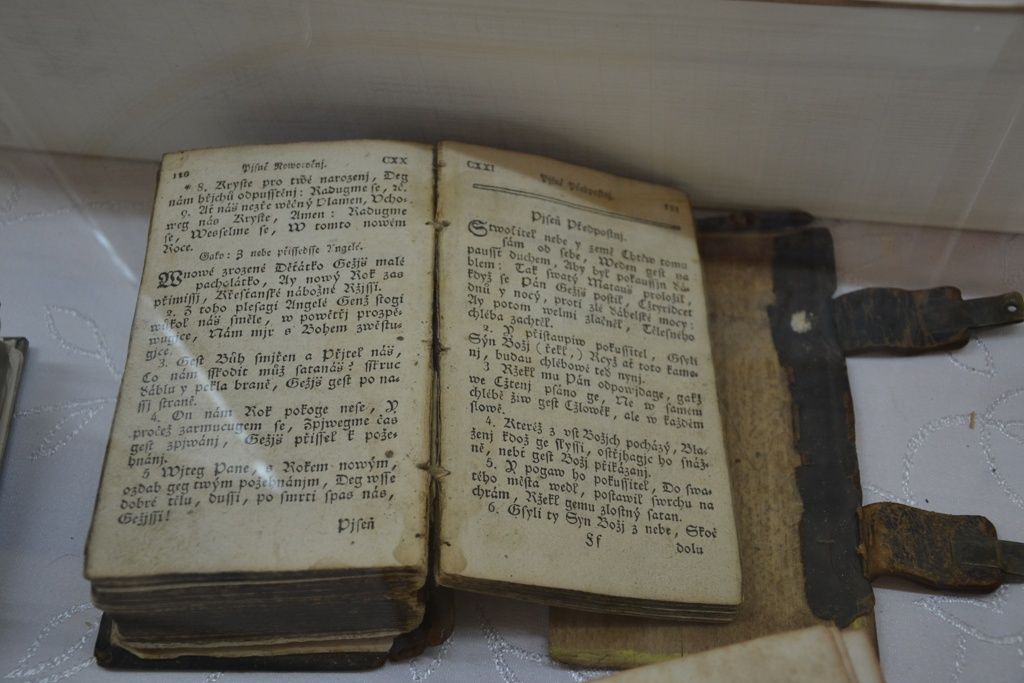 120 Pjsně Noworočnj. CXX
* 8. Kryste pro twé narozenj, Deg
nám hřjchů odpusstěnj: Radugme se, rč.
9. Ať náš nezře wěčný Plamen, Ucho-
weg nás Kryste, Amen: Radugme
se, Wesselme se, W tomto nowém
Roce.
Gako: Z nebe přissedsse Angelé.
Wnowě zrozené Děťátko Gežjš malé
pacholátko, Ay nowý Rok zas
přimissi, Křesťanské nábožné Ržjssi.
2. Z toho plesagj Angelé Genž stogj
wůkol nás směle, w powětřj prozpě-
wugjce, Nám mjr s Bohem zwěstu-
gjce.
3. Gest Bůh smjřen a Přjtel náš,
Co nám sskodit můž satanáš? sskruc
ďáblu y pekla braně, Gežjš gest po na-
ssj straně.
4. On nám Rok pokoge nese, Y
pročež zarmucugem se, Zpjwegme čas
gest zpjwánj, Gežjš přissel k pože-
hnánj.
5 Wjteg Pane, s Rokem nowým,
ozdab geg twým požehnánjm, Deg wsse
dobré tělu, dussi, po smrti spas nás,
Gežjssi!
Pjseň
CXXI Pjsně Předpostnj. 121
Pjseň Předpostnj.
Stwořitel nebe y země Chtěw tomu
sám od sebe, Weden gest na
paussť duchem, Aby byl pokaussjn ďá-
blem: Tak swatý Matauš proložil,
když se Pán Gežjš postil, Cžtyřidcet
dnů y nocý, proti zlé ďábelské mocy:
Ay potom welmi zlačněl, Tělesného
chleba zachtěl.
2. Y přistaupiw pokussitel, Gsyli
Syn Božj (řekl,) Rcyž ať toto kame-
nj, budau chlébowé teď nynj.
3 Ržekl mu Pán odpowjdage, gakž
we Cžtenj psáno ge, Ne w samém
chlébě žiw gest Cžlowěk, ale w každém
slowě.
4. Kteréž z úst Božjch pocházý, Bla-
ženj kdož ge slyssj, ostřjhagjc ho snáž-
ně, nebť gest Božj přikázanj.
5. Y pogaw ho pokussitel, Do swa-
tého města wedl, postawil swrchu na
chrám, Ržekl gemu zlostný satan.
6. Gsyli ty Syn Božj z nebe, Skoč
Ff dolů